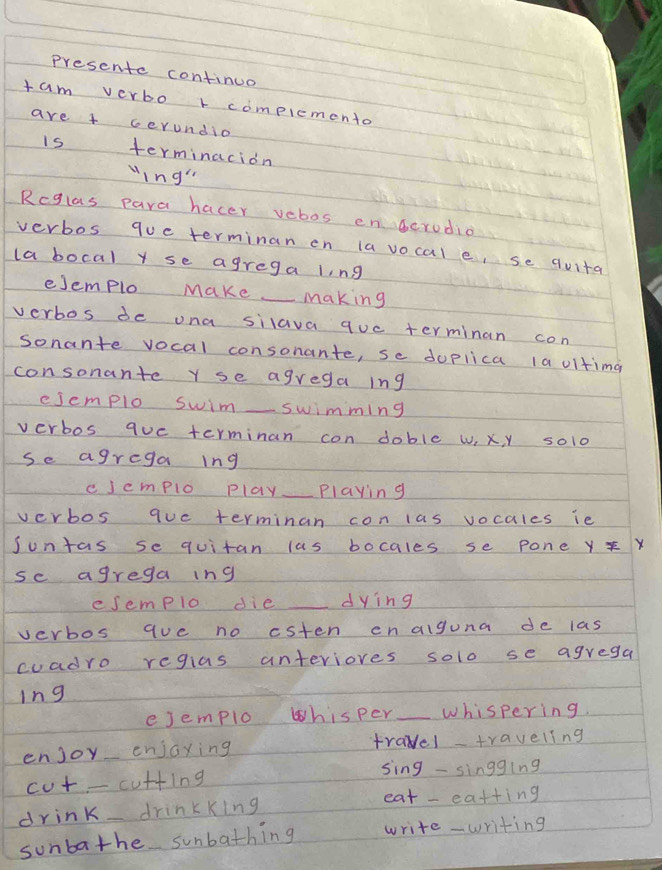 Presente continuo
+am verbo + complemento
are + gerundio
is terminación
"ing"
Reglas para hacer vebos en gerudio
verbos que terminan en la vocal e, se quita
la bocal y se agrega ing
ejemplo Make __ making
verbos de una silava que terminan con
sonante vocal consonante, se duplica la ultima
consonante y se agrega ing
ejemplo swim __ swimming
verbos que terminan con doble w, x, y solo
se agrega ing
ejemplo play __ playing
verbos que terminan con las vocales ie
juntas se quitan las bocales se pone y y
se agrega ing
ejemplo die __ dying
verbos que no esten en alguna de las
cuadro reglas anteriores solo se agrega
ing
ejemplo whisper __ whispering.
enjoy - enjoying
cut - cutting
drink - drinkking
sunbathe - sunbathing
travel - traveling
sing - singging
eat - eatting
write - writing